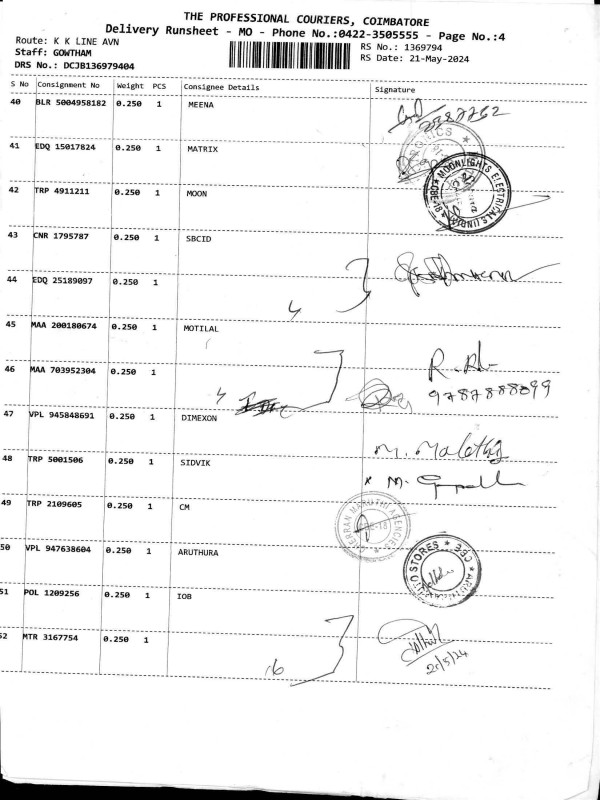 THE PROFESSIONAL COURIERS, COIMBATORE
Delivery Runsheet - MO - Phone No.:0422-3505555 - Page No.:4
Route: K K LINE AVN
RS No.: 1369794
Staff: GOWTHAM
RS Date: 21-May-2024
DRS No.: DCJB136979404
S No Consignment No Weight PCS Consignee Details Signature
40 BLR 5004958182 0.250 1 MEENA
41 EDQ 15017824 0.250 1 MATRIX
MOONLIGHTS ELECTRICALS
42 TRP 4911211 0.250 1 MOON
43 CNR 1795787 0.250 1 SBCID
44 EDQ 25189097 0.250 1
45 MAA 200180674 0.250 1 MOTILAL
46 MAA 703952304 0.250 1
9787888099
47 VPL 945848691 0.250 1 DIMEXON
M. Malathy
48 TRP 5001506 0.250 1 SIDVIK
49 TRP 2109605 0.250 1 CM
MARUTHI AGENCIES
50 VPL 947638604 0.250 1 ARUTHURA
STORES * CBE *
51 POL 1209256 0.250 1 IOB
52 MTR 3167754 0.250 1
21/5/24
16